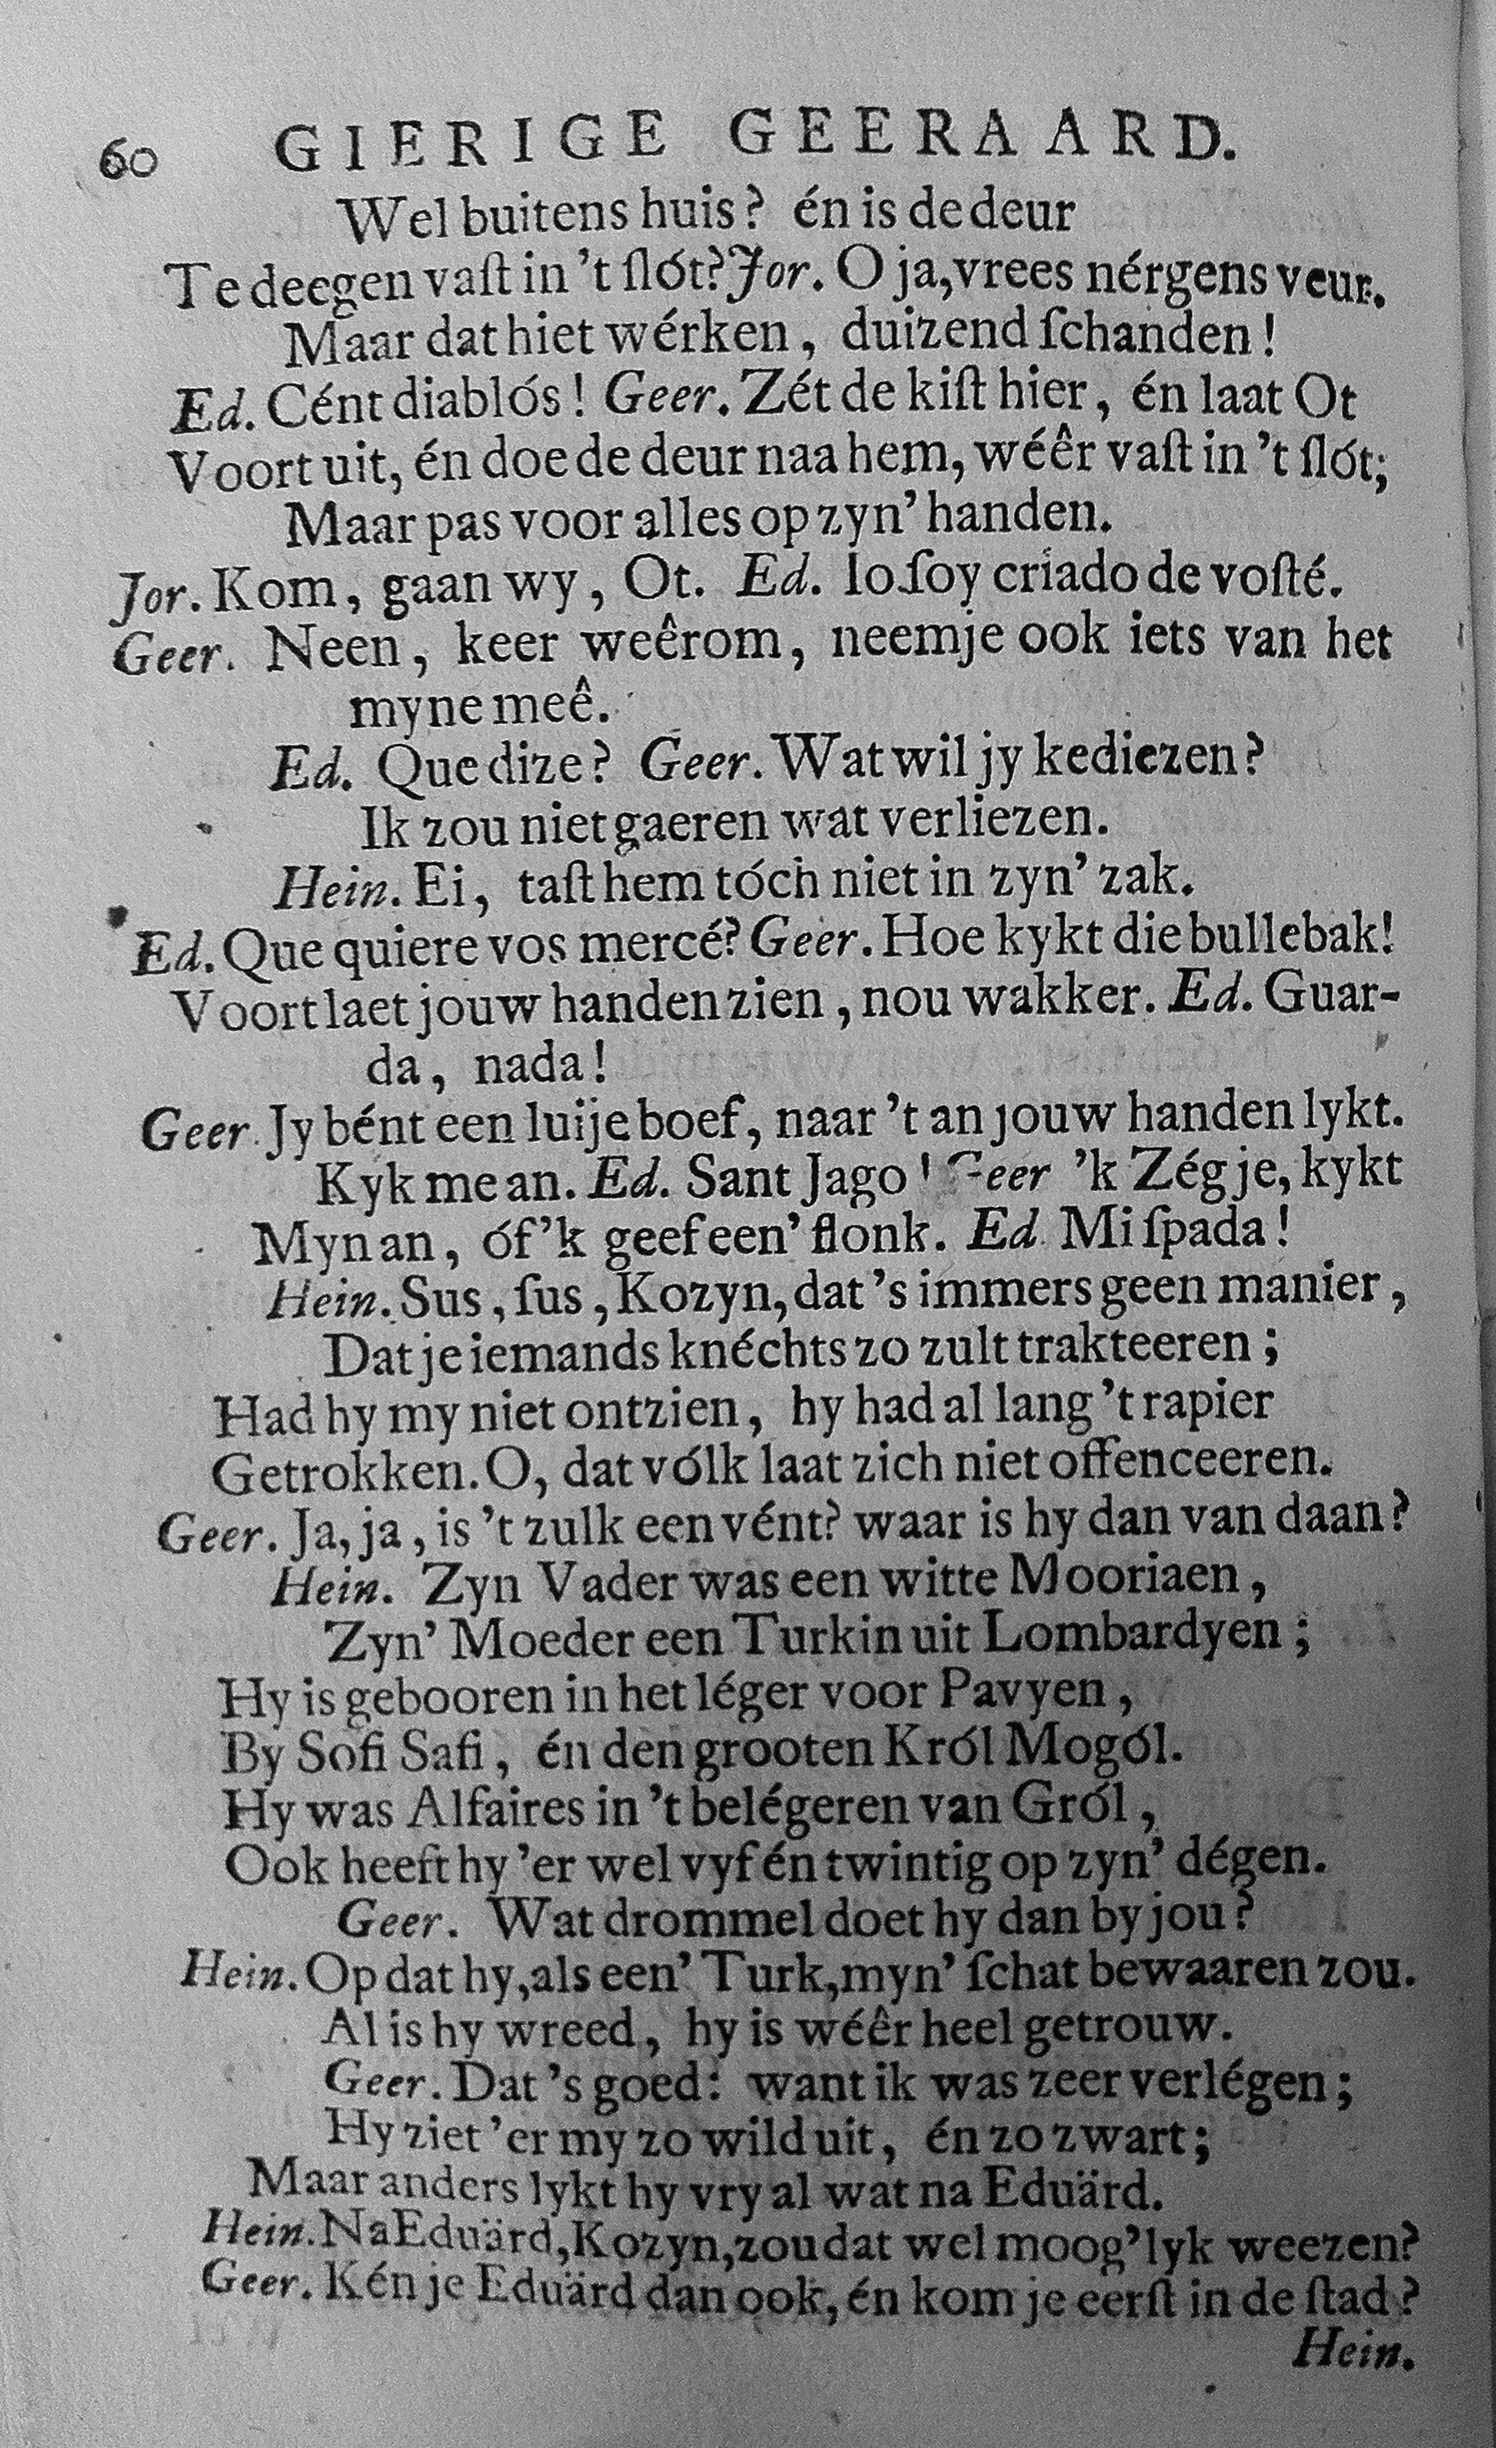 60 GIERIGE GEERAARD.
Wel buitens huis? én is de deur
Te deegen vaſt in 't ſlót? Jor. O ja, vrees nérgens veur.
Maar dat hiet wérken, duizend ſchanden!
Ed. Cént diablós! Geer. Zét de kiſt hier, én laat Ot
Voort uit, én doe de deur naa hem, wéêr vaſt in 't ſlót;
Maar pas voor alles op zyn' handen.
Jor. Kom, gaan wy, Ot. Ed. Io ſoy criado de voſté.
Geer. Neen, keer weêrom, neemje ook iets van het
myne meê.
Ed. Que dize? Geer. Wat wil jy kediezen?
Ik zou niet gaeren wat verliezen.
Hein. Ei, taſt hem tóch niet in zyn' zak.
Ed. Que quiere vos mercé? Geer. Hoe kykt die bullebak!
Voort laet jouw handen zien, nou wakker. Ed. Guar-
da, nada!
Geer. Jy bént een luije boef, naar 't an jouw handen lykt.
Kyk me an. Ed. Sant Jago! Geer 'k Zég je, kykt
Myn an, óf 'k geef een' flonk. Ed. Mi ſpada!
Hein. Sus, ſus, Kozyn, dat 's immers geen manier,
Dat je iemands knéchts zo zult trakteeren;
Had hy my niet ontzien, hy had al lang 't rapier
Getrokken. O, dat vólk laat zich niet offenceeren.
Geer. Ja, ja, is 't zulk een vént? waar is hy dan van daan?
Hein. Zyn Vader was een witte Mooriaen,
Zyn' Moeder een Turkin uit Lombardyen;
Hy is gebooren in het léger voor Pavyen,
By Sofi Safi, én den grooten Król Mogól.
Hy was Alfaires in 't belégeren van Gról,
Ook heeft hy 'er wel vyf én twintig op zyn' dégen.
Geer. Wat drommel doet hy dan by jou?
Hein. Op dat hy, als een' Turk, myn' ſchat bewaaren zou.
Al is hy wreed, hy is wéêr heel getrouw.
Geer. Dat 's goed: want ik was zeer verlégen;
Hy ziet 'er my zo wild uit, én zo zwart;
Maar anders lykt hy vry al wat na Eduärd.
Hein. Na Eduärd, Kozyn, zou dat wel moog'lyk weezen?
Geer. Kén je Eduärd dan ook, én kom je eerſt in de ſtad?
Hein.